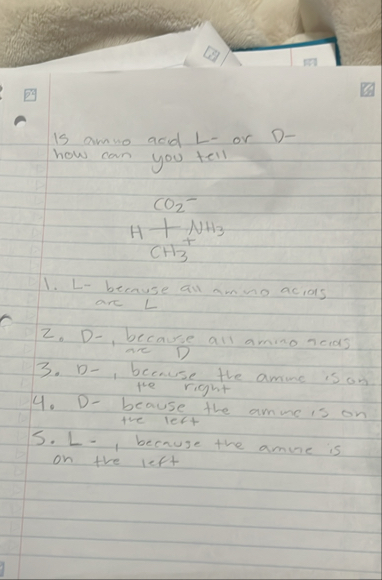 Is amino acid L- or D-
how can you tell
CO2-
H + NH3
+
CH3
1. L- because all amino acids
are L
2. D-, because all amino acids
are D
3. D-, because the amine is on
the right
4. D- beause the amine is on
the left
5. L-, because the amine is
on the left